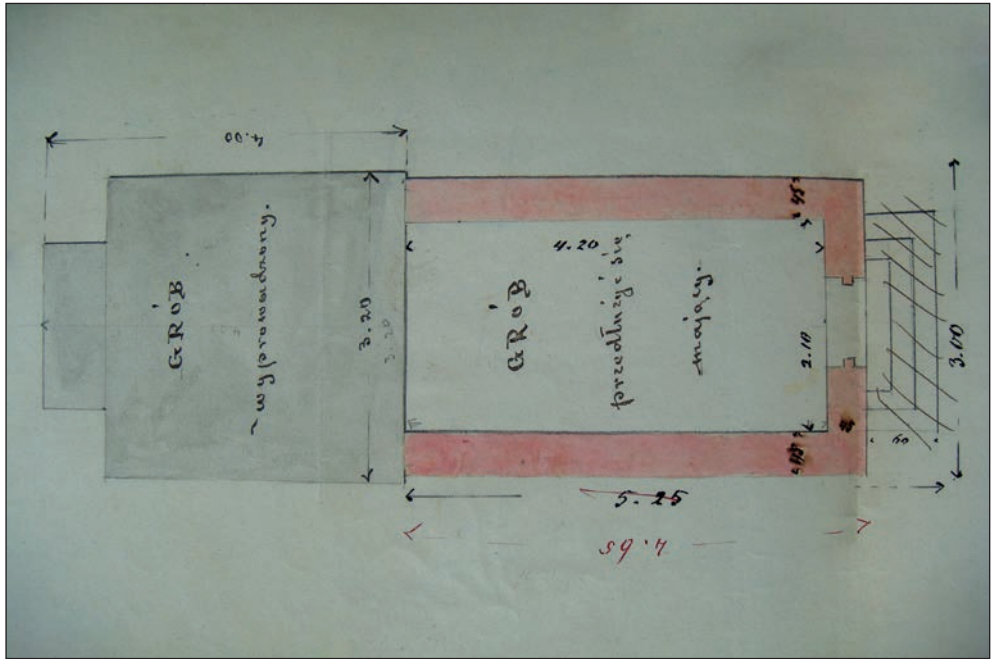 4.00
GRÓB
~ wyprowadzony.
3.20
3.20
4.20
GRÓB
przedłużyć się,
mający.
2.10
45
45
60
3.00
5.25
4.65